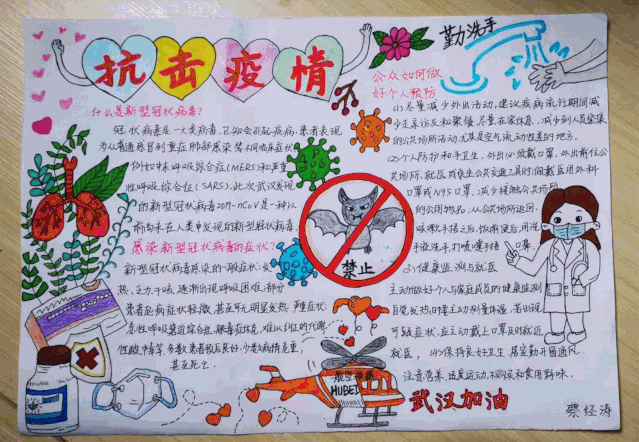 抗击疫情
勤洗手
什么是新型冠状病毒?
冠状病毒是一大类病毒,已知会引起疾病,患者表现
为从普通感冒到重症肺部感染等不同临床症状
例如中东呼吸综合症(MERS)和严重急
性呼吸综合症(SARS),此次武汉发现
的新型冠状病毒2019-nCoV是一种以
前尚未在人类中发现的新型冠状病毒。
感染新型冠状病毒的症状?
新型冠状病毒感染的一般症状:发
热、乏力、干咳、逐渐出现呼吸困难;部分
患者起病症状轻微,甚至可无明显发热。严重症状:
急性呼吸窘迫综合征,脓毒症休克,难以纠正的代谢
性酸中毒等,多数患者预后良好,少数病情危重,
甚至死亡。
公众如何做
好个人预防
(1)尽量减少外出活动,建议疾病流行期间减
少走亲访友和聚餐,尽量在家休息,减少到人员密集
的公共场所活动,尤其是空气流动性差的地方。
(2)个人防护和手卫生,外出必须戴口罩,外出前往公
共场所,就医或乘坐公共交通工具时,佩戴医用外科
口罩或N95口罩,减少接触公共场所
的公用物品,从公共场所返回,
咳嗽手捂之后,饭前便后,用洗
手液洗手,打喷嚏手捂口鼻。
(3)健康监测与就医
主动做好个人与家庭成员的健康监测
自觉发热时要主动测量体温,若出现
可疑症状,应主动戴上口罩及时就近
就医。(4)保持良好卫生,居室勤开窗通风,
注意营养,适度运动,不购买和食用野味。
禁止
航空救援
HUBEI
武汉加油
蔡经涛